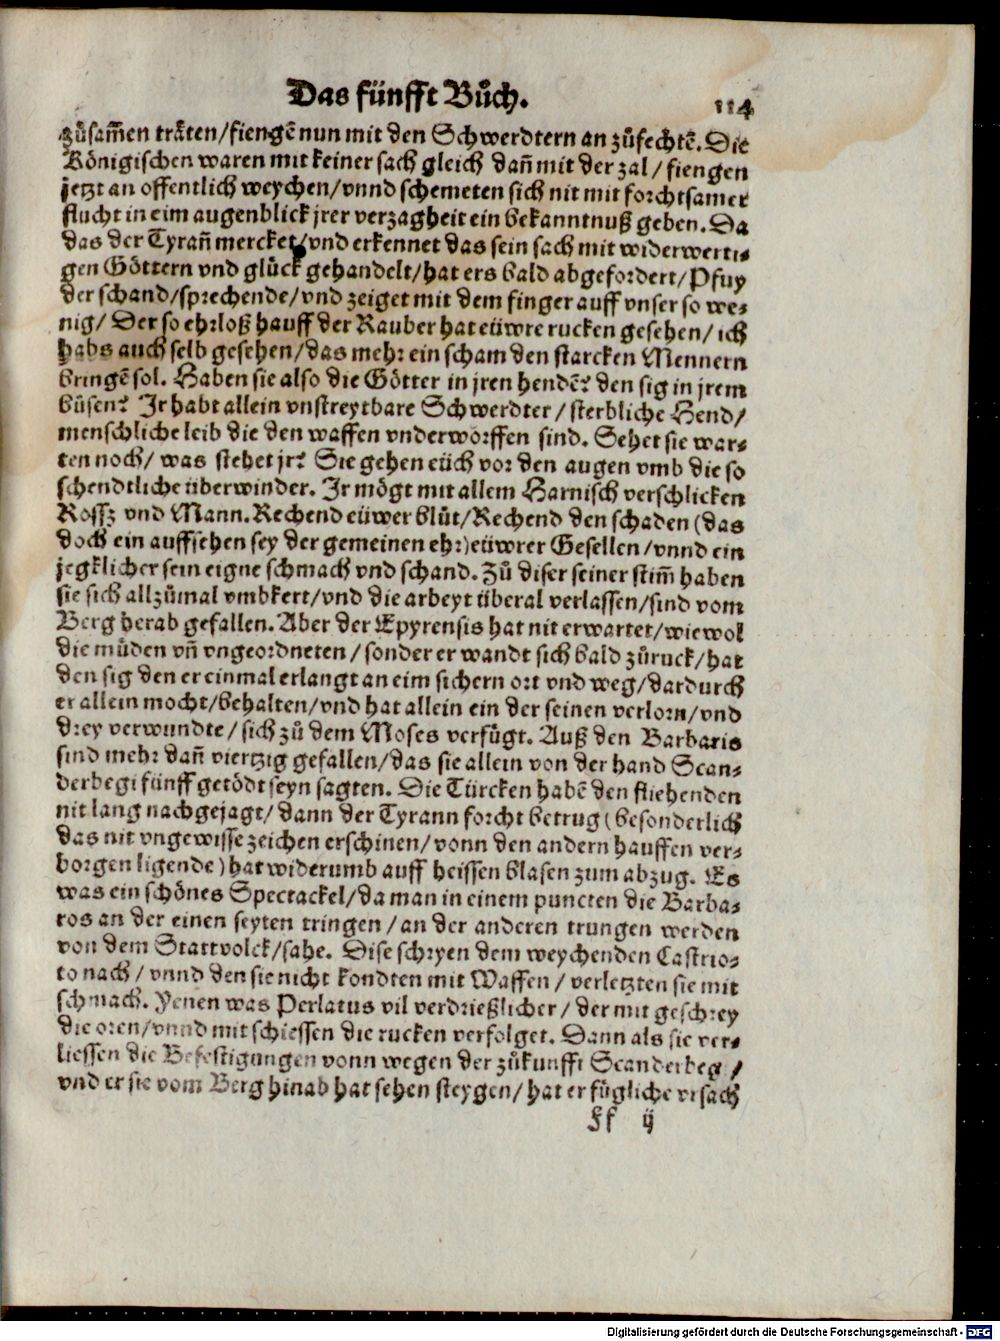 Das fünfft Bůch. 114
zůsam̃en tråten/fiengē nun mit den Schwerdtern an zůfechtē. Die
Königischen waren mit keiner sach gleich dañ mit der zal/fiengen
jetzt an offentlich weychen/vnnd schemeten sich nit mit forchtsamer
flucht in eim augenblick jrer verzagheit ein bekanntnuß geben. Da
das der Tyrañ mercket/vnd erkennet das sein sach mit widerwerti⸗
gen Göttern vnd glück gehandelt/hat ers bald abgefordert/Pfuy
der schand/sprechende/vnd zeiget mit dem finger auff vnser so we⸗
nig/ Der so ehrloß hauff der Rauber hat eüwre rucken gesehen/ ich
habs auch selb gesehen/das mehr ein scham den starcken Mennern
bringē sol. Haben sie also die Götter in jren hendē? den sig in jrem
bůsen? Ir habt allein vnstreytbare Schwerdter/ sterbliche Hend/
menschliche leib die den waffen vnderworffen sind. Sehet sie war⸗
ten noch/ was stehet jr? Sie gehen eüch vor den augen vmb die so
schendtliche überwinder. Ir mögt mit allem Harnisch verschlicken
Rossz vnd Mann. Rechend eüwer blůt/Rechend den schaden (das
doch ein auffsehen sey der gemeinen ehr) eüwrer Gesellen/vnnd ein
jegklicher sein eigne schmach vnd schand. Zů diser seiner stim̃ haben
sie sich allzůmal vmbkert/vnd die arbeyt überal verlassen/sind vom
Berg herab gefallen. Aber der Epyrensis hat nit erwartet/wiewol
die můden vñ vngeordneten/ sonder er wandt sich bald zůruck/hat
den sig den er einmal erlangt an eim sichern ort vnd weg/dardurch
er allein mocht/behalten/vnd hat allein ein der seinen verlorn/vnd
drey verwundte/sich zů dem Moses verfůgt. Auß den Barbaris
sind mehr dañ viertzig gefallen/das sie allein von der hand Scan⸗
derbegi fünff getödt seyn sagten. Die Türcken habē den fliehenden
nit lang nachgejagt/ dann der Tyrann forcht betrug (besonderlich
das nit vngewisse zeichen erschinen/ vonn den andern hauffen ver⸗
borgen ligende) hat widerumb auff heissen blasen zum abzug. Es
was ein schönes Spectackel/da man in einem puncten die Barba⸗
ros an der einen seyten tringen/an der anderen trungen werden
von dem Stattvolck/sahe. Dise schryen dem weychenden Castrio⸗
to nach/ vnnd den sie nicht kondten mit Waffen/ verletzten sie mit
schmach. Yenen was Perlatus vil verdrießlicher/ der mit geschrey
die oren/vnnd mit schiessen die rucken verfolget. Dann als sie ver⸗
liessen die Befestigungen vonn wegen der zůkunfft Scanderbeg/
vnd er sie vom Berg hinab hat sehen steygen/ hat er fůgliche vrsach
Ff ij
Digitalisierung gefördert durch die Deutsche Forschungsgemeinschaft - DFG